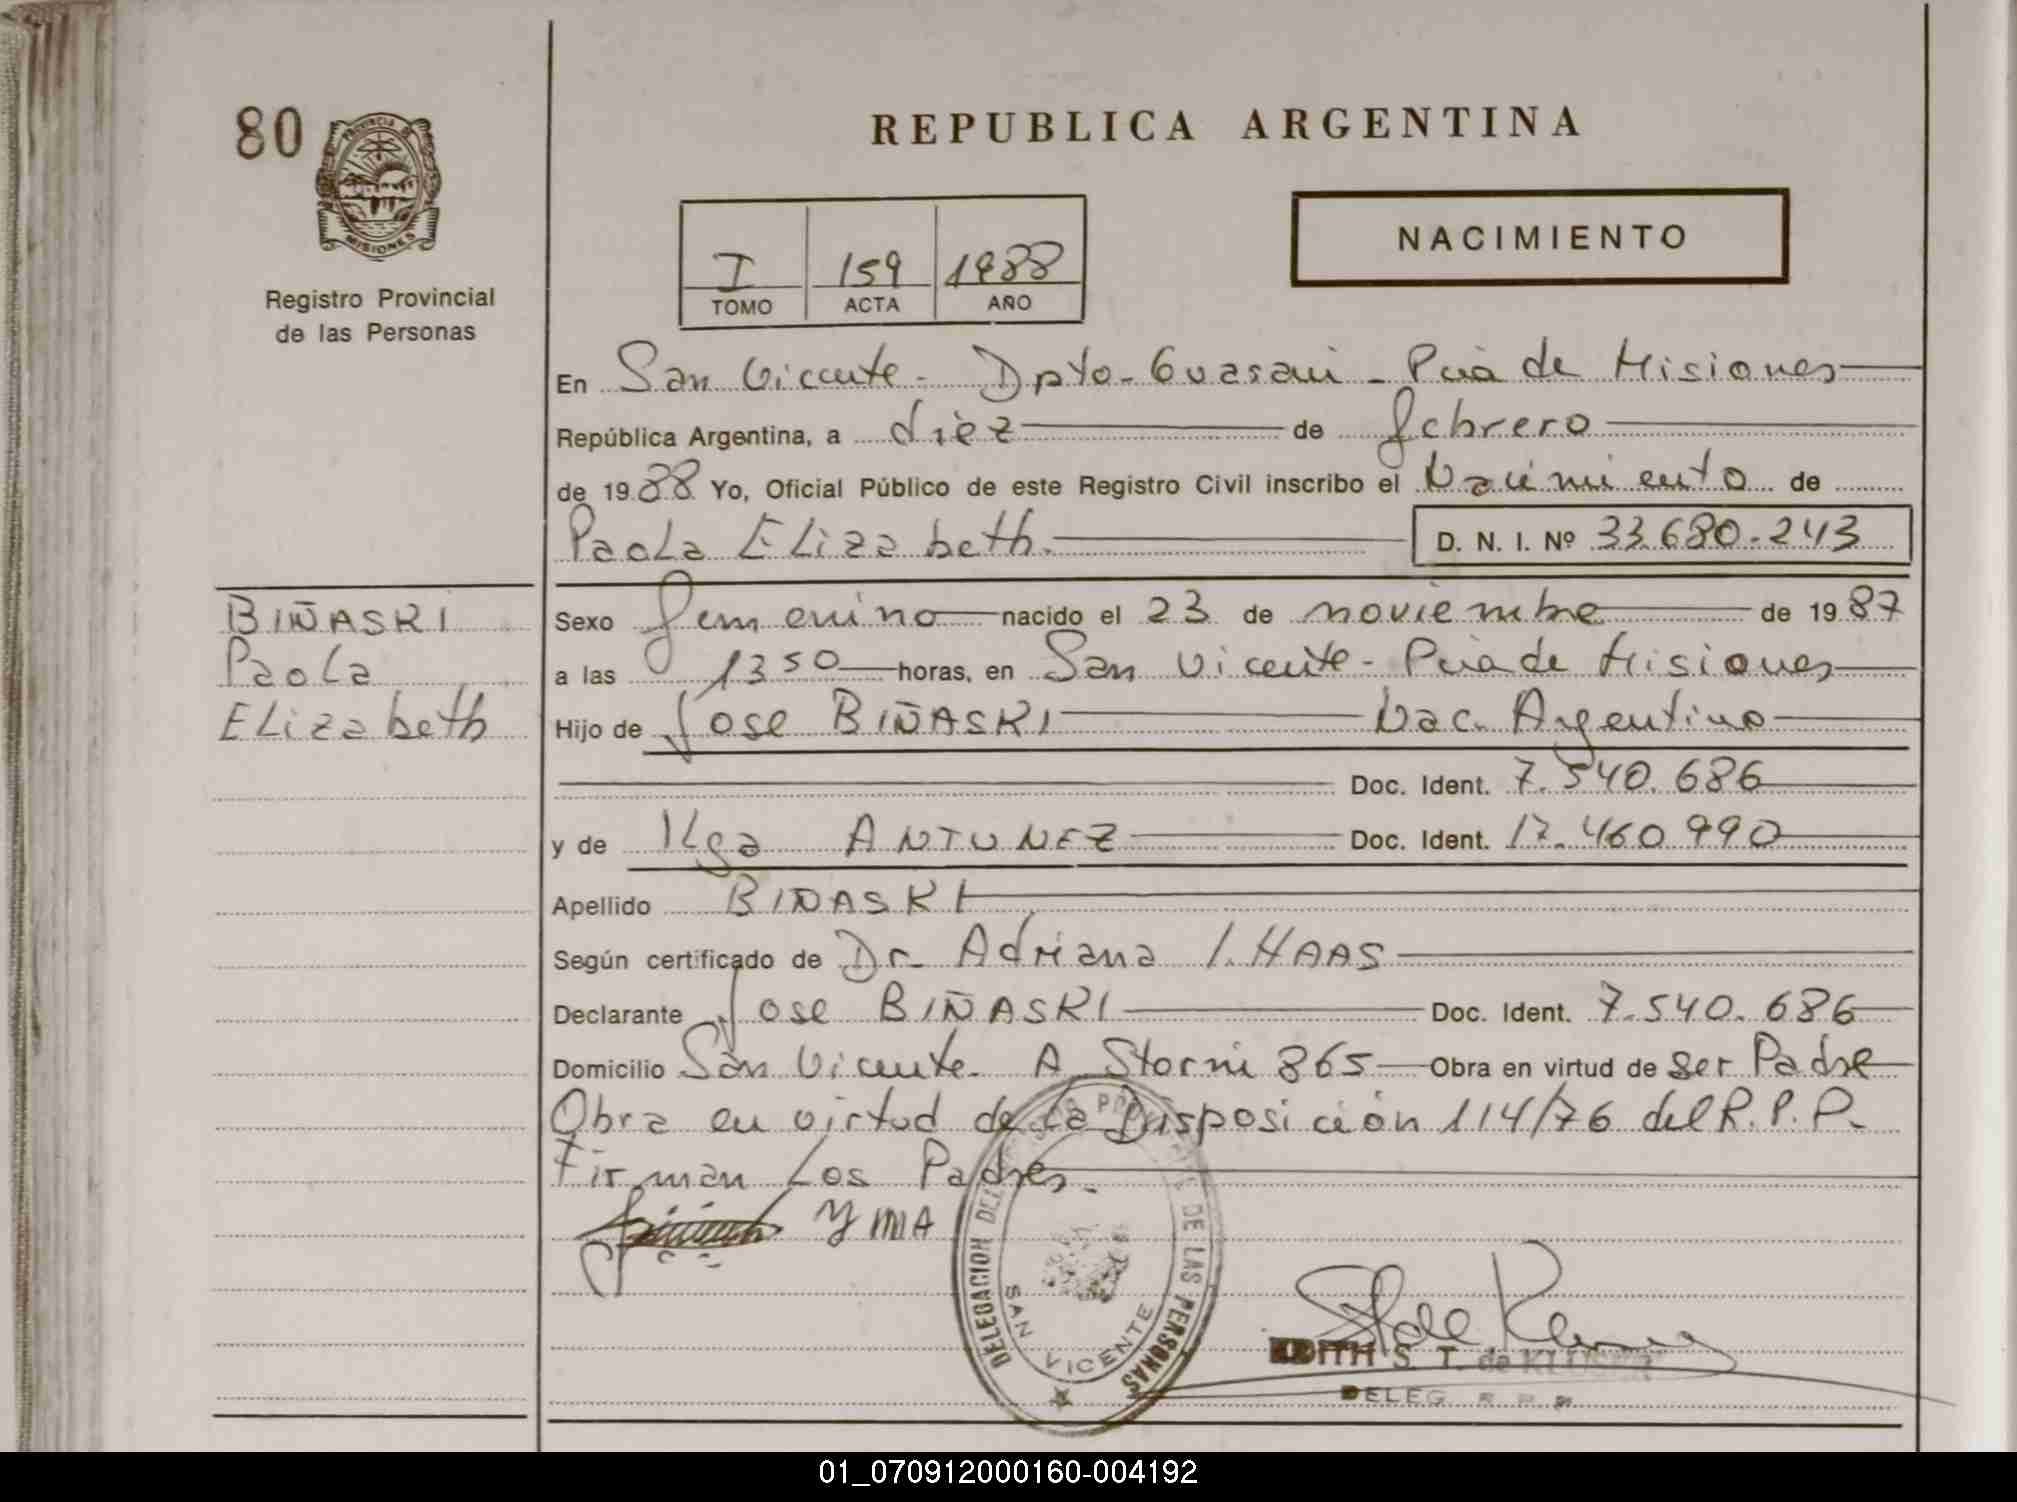 80
PROVINCIA DE
MISIONES
Registro Provincial
de las Personas
REPUBLICA ARGENTINA
NACIMIENTO
I 159 1988
TOMO ACTA AÑO
En San Vicente - Dpto - Guarani - Pcia de Misiones
República Argentina, a diez de febrero
de 1988 Yo, Oficial Público de este Registro Civil inscribo el Nacimiento de
Paola Elizabeth. D. N. I. Nº 33.680.243
BIÑASKI
Paola
Elizabeth
Sexo femenino nacido el 23 de noviembre de 1987
a las 13 50 horas, en San Vicente - Pcia de Misiones
Hijo de Jose BIÑASKI Nac. Argentino
Doc. Ident. 7.540.686
y de Ilga ANTUNEZ Doc. Ident. 17.460.990
Apellido BIÑASKI
Según certificado de Dr. Adriana I. HAAS
Declarante Jose BIÑASKI Doc. Ident. 7.540.686
Domicilio San Vicente. A Storni 865 Obra en virtud de ser Padre
Obra en virtud de la Disposición 114/76 del R.P.P.
Firman los Padres.
DELEGACION DEL REGISTRO PROVINCIAL DE LAS PERSONAS
SAN VICENTE
EDITH S. T. de KLUSER
DELEG. R. P. P.
01_070912000160-004192